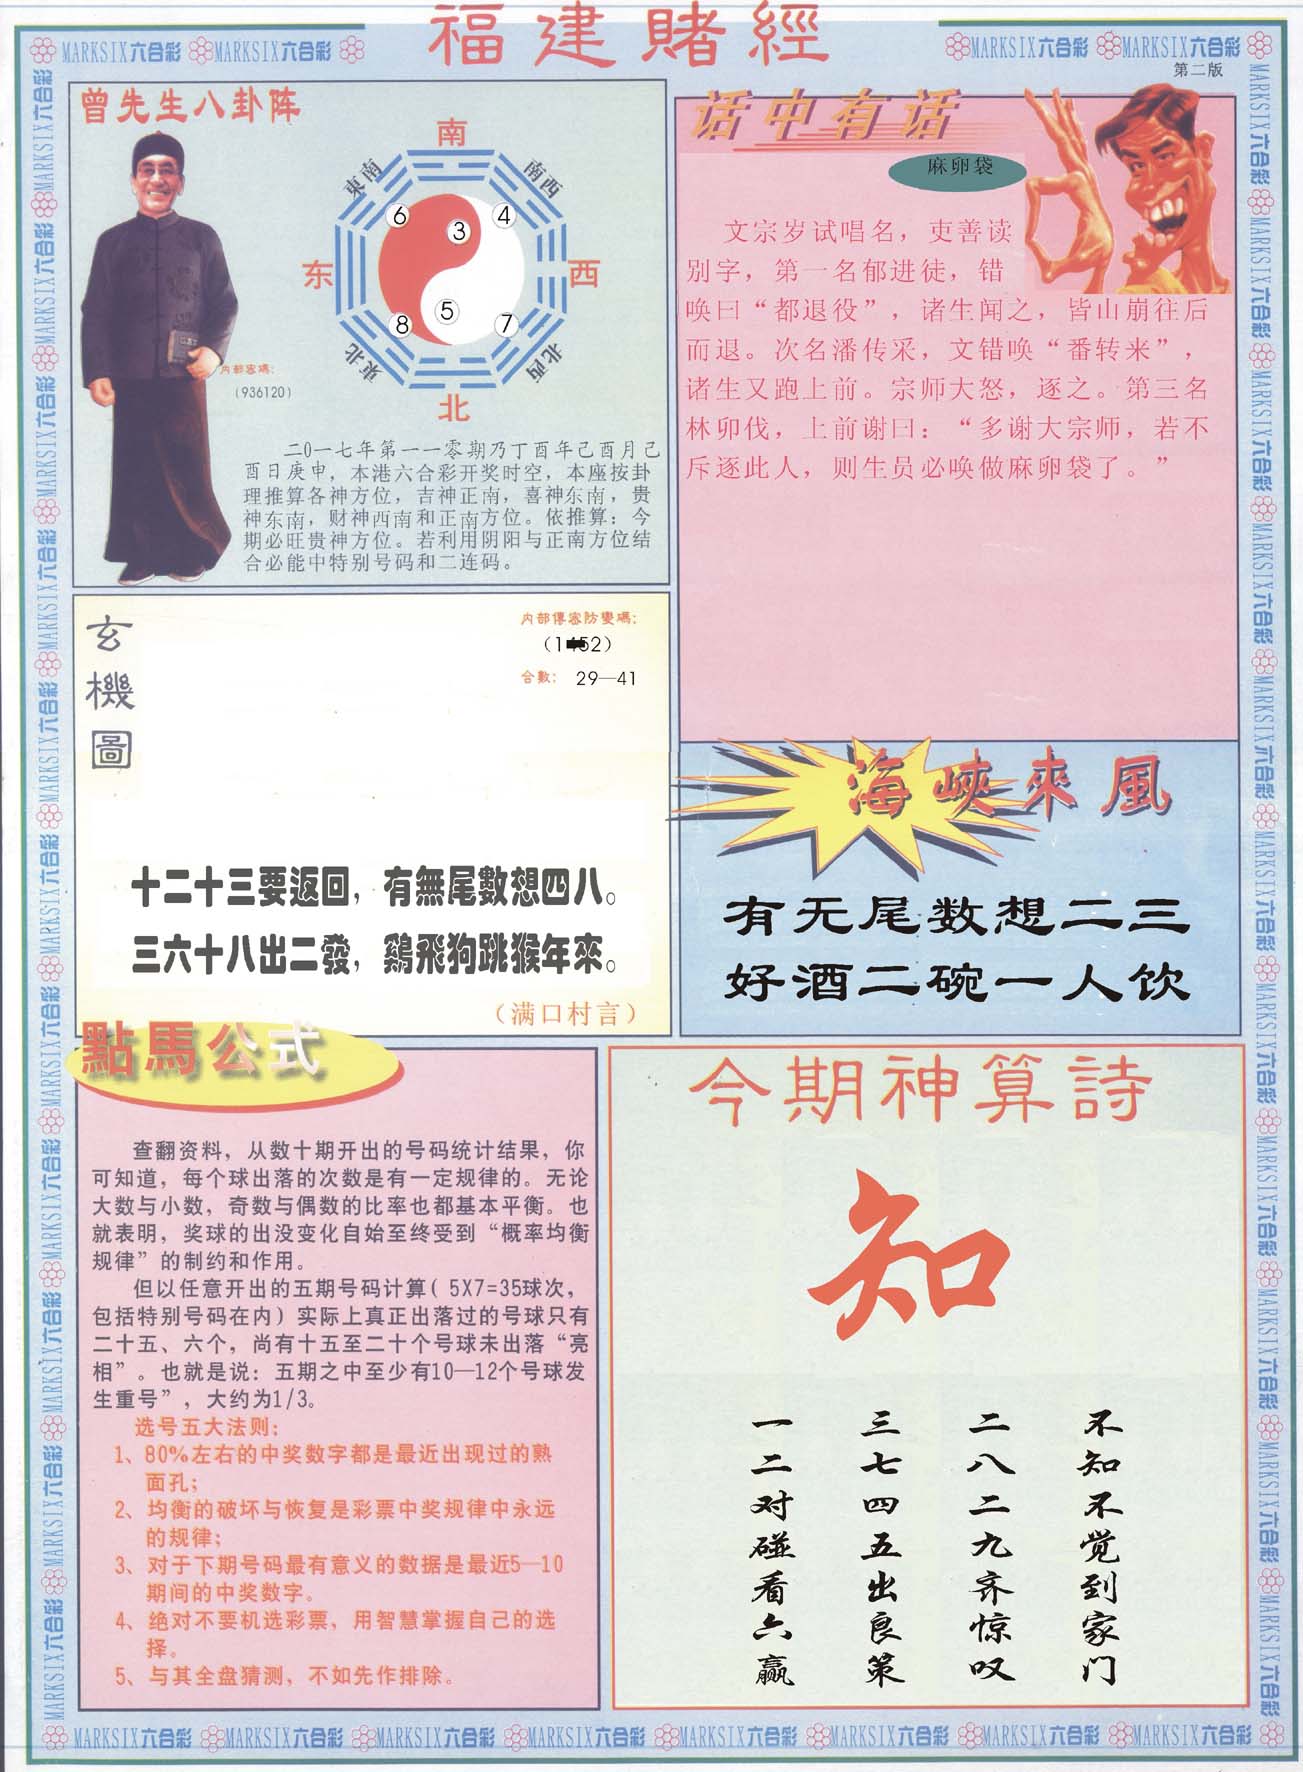 福建賭經
MARKSIX六合彩 MARKSIX六合彩
MARKSIX六合彩 MARKSIX六合彩
第二版
曾先生八卦阵
南
東南
南西
6
3
4
东
西
5
8
7
東北
北西
北
内部密碼:
(936120)
二〇一七年第一一零期乃丁酉年己酉月己
酉日庚申，本港六合彩开奖时空，本座按卦
理推算各神方位，吉神正南，喜神东南，贵
神东南，财神西南和正南方位。依推算：今
期必旺贵神方位。若利用阴阳与正南方位结
合必能中特别号码和二连码。
话中有话
麻卵袋
文宗岁试唱名，吏善读
别字，第一名郁进徒，错
唤曰“都退役”，诸生闻之，皆山崩往后
而退。次名潘传采，文错唤“番转来”，
诸生又跑上前。宗师大怒，逐之。第三名
林卯伐，上前谢曰：“多谢大宗师，若不
斥逐此人，则生员必唤做麻卵袋了。”
玄機圖
内部傳密防變碼:
合數: 29—41
十二十三要返回，有無尾數想四八。
三六十八出二發，鷄飛狗跳猴年來。
（满口村言）
海峽來風
有无尾数想二三
好酒二碗一人饮
點馬公式
查翻资料，从数十期开出的号码统计结果，你
可知道，每个球出落的次数是有一定规律的。无论
大数与小数，奇数与偶数的比率也都基本平衡。也
就表明，奖球的出没变化自始至终受到“概率均衡
规律”的制约和作用。
但以任意开出的五期号码计算( 5X7=35球次，
包括特别号码在内）实际上真正出落过的号球只有
二十五、六个，尚有十五至二十个号球未出落“亮
相”。也就是说：五期之中至少有10—12个号球发
生重号”，大约为1/3。
选号五大法则：
1、80%左右的中奖数字都是最近出现过的熟
面孔；
2、均衡的破坏与恢复是彩票中奖规律中永远
的规律；
3、对于下期号码最有意义的数据是最近5—10
期间的中奖数字。
4、绝对不要机选彩票，用智慧掌握自己的选
择。
5、与其全盘猜测，不如先作排除。
今期神算詩
知
不知不觉到家门
二八二九齐惊叹
三七四五出良策
一二对碰看六赢
MARKSIX六合彩 MARKSIX六合彩 MARKSIX六合彩 MARKSIX六合彩 MARKSIX六合彩 MARKSIX六合彩 MARKSIX六合彩 MARKSIX六合彩